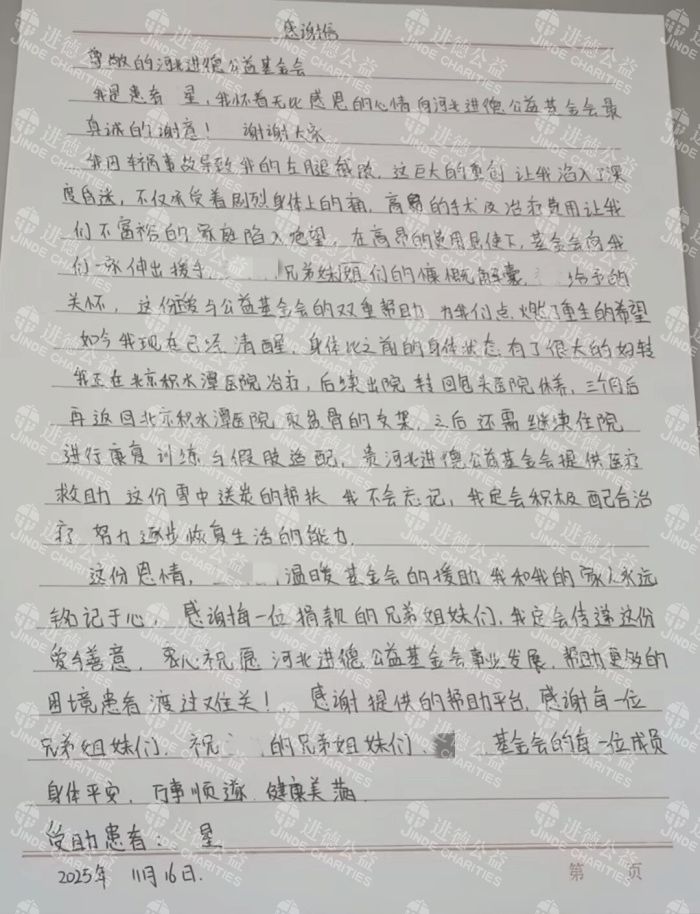 感谢信
尊敬的河北进德公益基金会
我是患者 星，我怀着无比感恩的心情向河北进德公益基金会最
真诚的谢意！ 谢谢大家
我因车祸事故导致我的左月腿截肢，这巨大的重创 让我陷入了深
度昏迷，不仅承受着剧烈身体上的痛，高昂的手术及治疗费用让我
们不富裕的家庭陷入绝望，在高昂的费用压使下，基金会向我
们一家伸出援手 兄弟姊妹们的慷慨解囊， 给予的
关怀，这份爱与公益基金会的双重帮助 为我们点燃了重生的希望
如今我现在已经清醒，身体比之前的身体状态有了很大的好转
我正在北京积水潭医院治疗，后续出院 转回包头医院休养，三个月后
再返回北京积水潭医院取盆骨的支架，之后还需继续住院
进行康复训练与假肢适配，贵河北进德公益基金会提供医疗
救助 这份雪中送炭的帮扶 我不会忘记，我定会积极配合治
疗 努力逐步恢复生活的能力.
这份恩情， ，温暖基金会的援助 我和我的家人永远
铭记于心，感谢每一位捐款的兄弟姐妹们，我定会传递这份
爱与善意，衷心祝愿 河北进德公益基金会事业发展，帮助更多的
困境患者渡过难关！ 感谢提供的帮助平台，感谢每一位
兄弟姐妹们，祝 的兄弟姐妹们， 基金会的每一位成员
身体平安，万事顺遂 健康美满
受助患者： 星
2025年 11月16日.
第 页
进德公益
JINDE CHARITIES